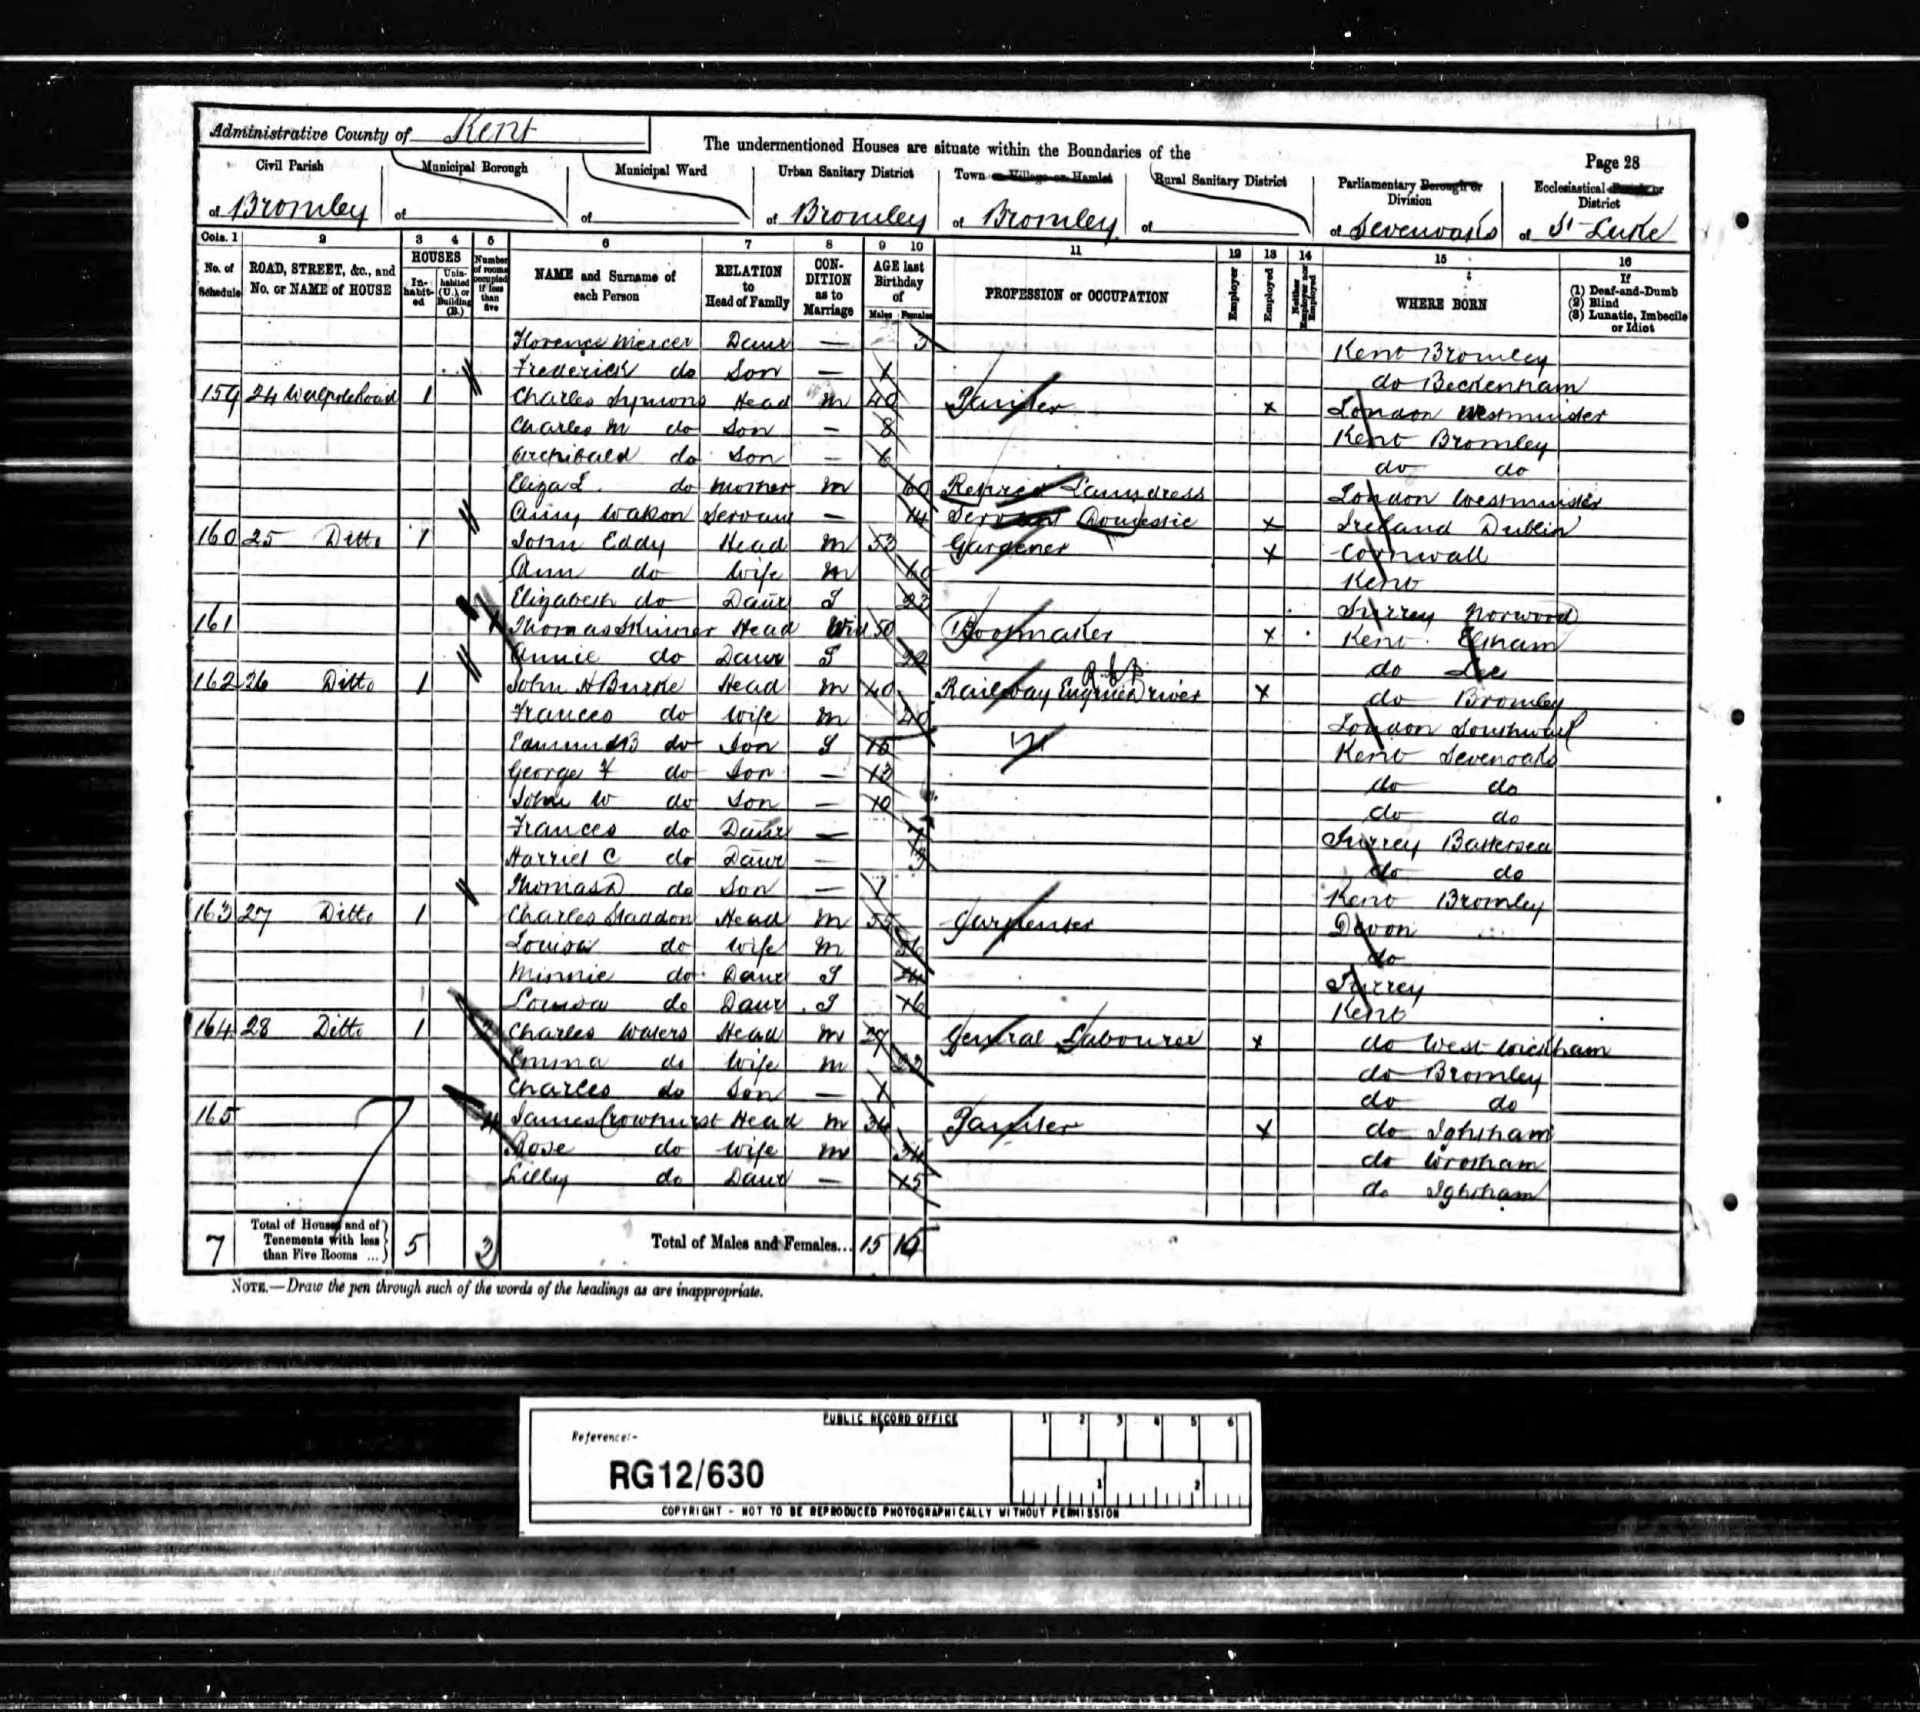 Administrative County of Kent
The undermentioned Houses are situate within the Boundaries of the
Page 28
Civil Parish of Bromley
Municipal Borough of
Municipal Ward of
Urban Sanitary District of Bromley
Town or Village or Hamlet of Bromley
Rural Sanitary District of
Parliamentary Borough or Division of Sevenoaks
Ecclesiastical Parish or District of St Luke
Cols. 1 2 3 4 5 6 7 8 9 10 11 12 13 14 15 16
No. of Schedule
ROAD, STREET, &c., and No. or NAME of HOUSE
HOUSES
In-habit-ed
Unin-habited (U.), or Building (B.)
Number of rooms occupied if less than five
NAME and Surname of each Person
RELATION to Head of Family
CON-DITION as to Marriage
AGE last Birthday of
Males Females
PROFESSION or OCCUPATION
Employer
Employed
Neither Employer nor Employed
WHERE BORN
If (1) Deaf-and-Dumb (2) Blind (3) Lunatic, Imbecile or Idiot
Florence Mercer Daur — 3 Kent Bromley
Frederick do Son — 1 do Beckenham
159 24 Walpole Road 1 Charles Symons Head M 40 Painter x London Westminster
Charles M do Son — 8 Kent Bromley
Archibald do Son — 6 do do
Eliza L. do Mother M 60 Laundress London Westminster
Servant — 14 Servant Domestic x Ireland Dublin
160 25 Ditto 1 John Eddy Head M 53 Gardener x Cornwall
Ann do Wife M 60 Kent
Elizabeth do Daur S 23 Surrey Norwood
161 Thomas Skinner Head Wid 50 Bootmaker x Kent Eltham
Annie do Daur S 22 do Lee
162 26 Ditto 1 John H Burke Head M 40 Railway Engine Driver x do Bromley
Frances do Wife M 40 London Southwark
Edmund B do Son S 15 Kent Sevenoaks
George F do Son — 12 do do
John W do Son — 10 do do
Frances do Daur — 7 Surrey Battersea
Harriet C do Daur — 5 do do
Thomas do Son — 1 Kent Bromley
163 27 Ditto 1 Charles Staddon Head M 55 Carpenter Devon
Louisa do Wife M 56 do
Minnie do Daur S Surrey
Louisa do Daur S 16 Kent
164 28 Ditto 1 Charles Waters Head M 27 General Labourer x do West Wickham
Emma do Wife M 22 do Bromley
Charles do Son — 1 do do
165 James Crowhurst Head M 34 Painter x do Ightham
Rose do Wife M 34 do Wrotham
Lilly do Daur — 15 do Ightham
7 Total of Houses and of Tenements with less than Five Rooms ... 5 Total of Males and Females... 15 15
NOTE.—Draw the pen through such of the words of the headings as are inappropriate.
PUBLIC RECORD OFFICE
1 2 3 4 5 6
Reference:-
RG12/630
1 2
COPYRIGHT - NOT TO BE REPRODUCED PHOTOGRAPHICALLY WITHOUT PERMISSION